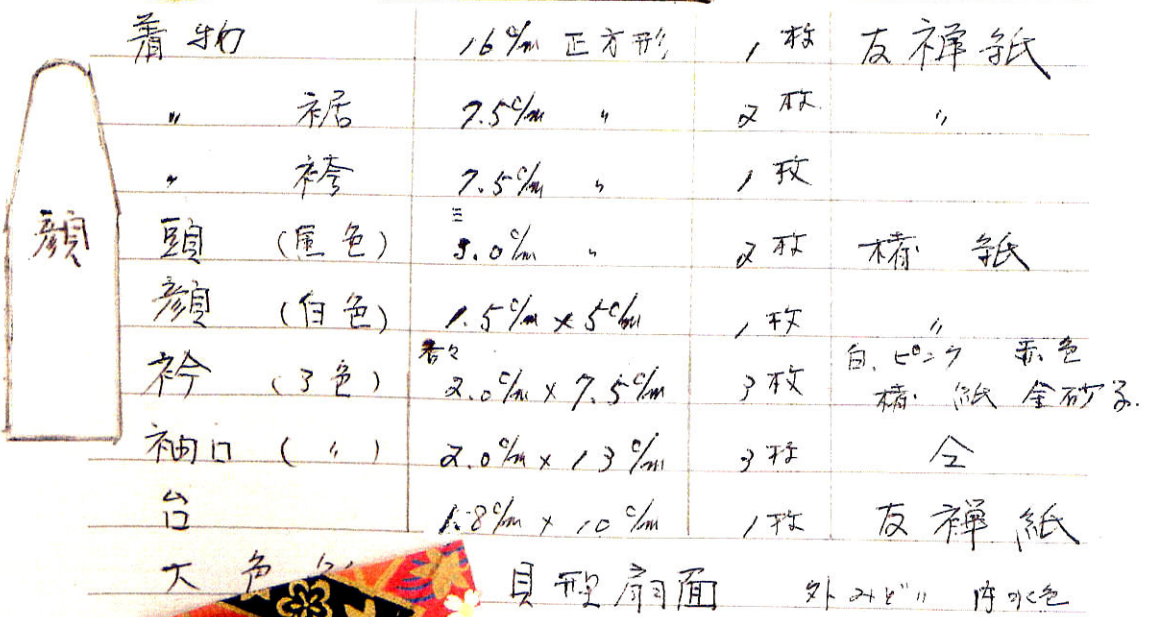 着物 16c/m 正方形 1枚 友禅紙
〃 裾 7.5c/m 〃 2枚 〃
〃 袴 7.5c/m 〃 1枚
顔
頭 (黒色) 三 5.0c/m 〃 2枚 楮紙
顔 (白色) 1.5c/m×5c/m 1枚 〃
衿 (3色) 各々 2.0c/m×7.5c/m 3枚 白、ピンク 赤色
楮紙 金砂子.
袖口 (〃) 2.0c/m×13c/m 3枚 仝
台 1.8c/m×10c/m 1枚 友禅紙
大色 貝型扇面 外みどり 内水色